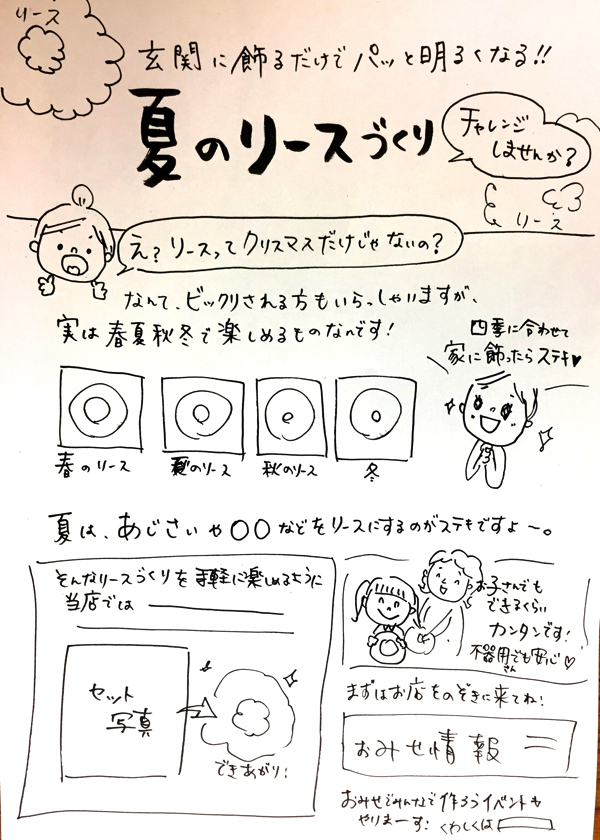 リース
玄関に飾るだけでパッと明るくなる!!
夏のリースづくり
チャレンジ
しませんか?
リース
え?リースってクリスマスだけじゃないの?
なんて、ビックリされる方もいらっしゃいますが、
実は春夏秋冬で楽しめるものなんです!
四季に合わせて
家に飾ったらステキ♥
春のリース
夏のリース
秋のリース
冬
夏は、あじさいや〇〇などをリースにするのがステキですよー。
そんなリースづくりを手軽に楽しめるように
当店では
セット
写真
できあがり!
お子さんでも
できるくらい
カンタンです!
不器用さんでも安心♡
まずはお店をのぞきに来てね!
おみせ情報
おみせでみんなで作ろうイベントも
やりまーす!くわしくは